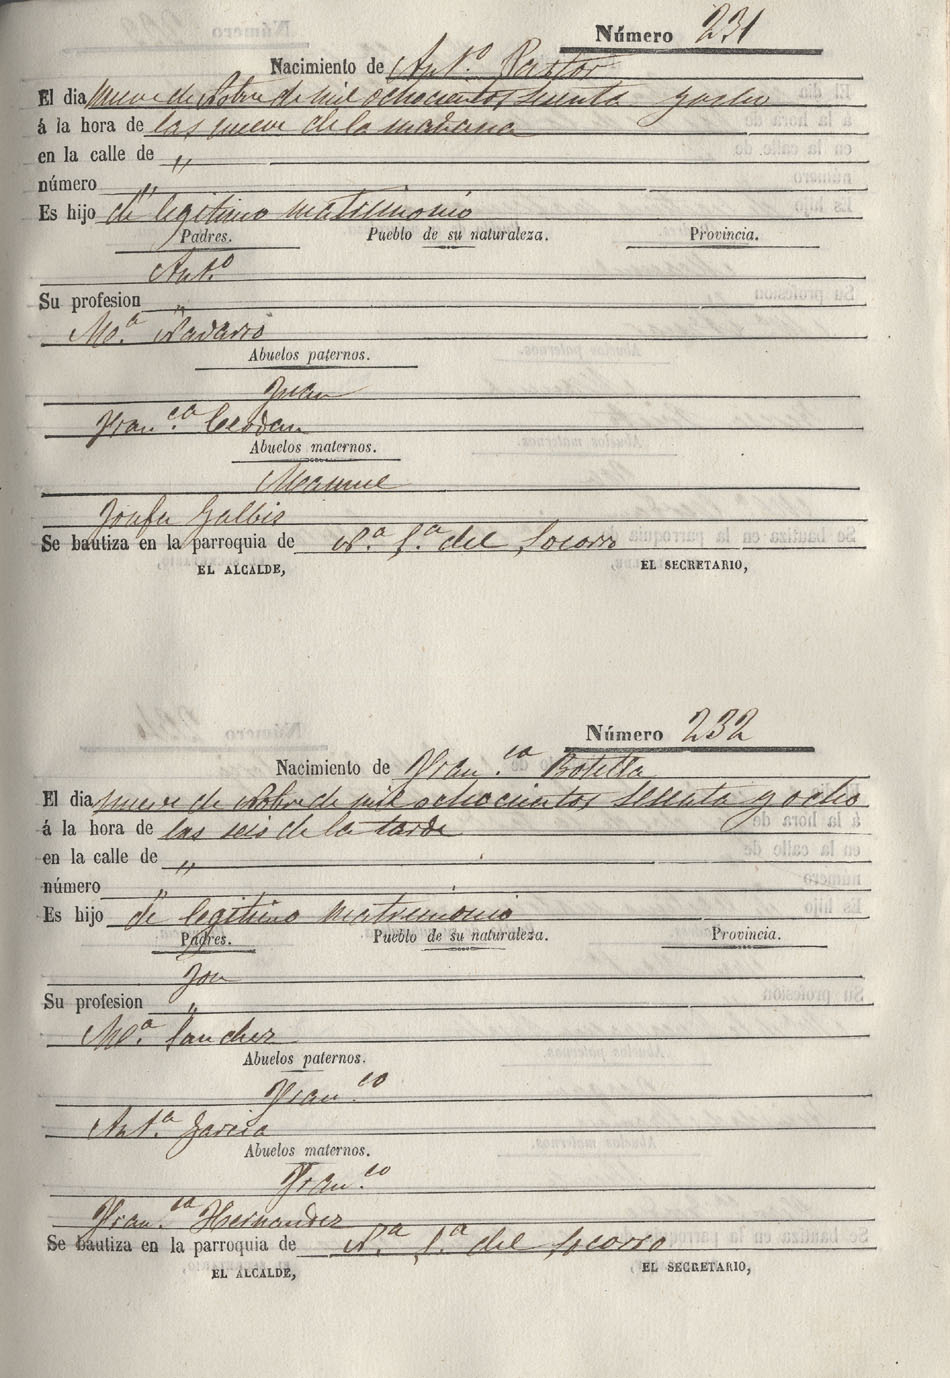 Número 231
Nacimiento de Ant.º Pastor
El dia nueve de Nobre de mil ochocientos sesenta y ocho
á la hora de las nueve de la mañana
en la calle de "
número "
Es hijo de legitimo matrimonio
Padres. Pueblo de su naturaleza. Provincia.
Ant.º
Su profesion "
M.ª Navarro
Abuelos paternos.
Juan
Fran.ca Cerdan
Abuelos maternos.
Manuel
Josefa Galbis
Se bautiza en la parroquia de N.ª S.ª del Socorro
EL ALCALDE, EL SECRETARIO,
Número 232
Nacimiento de Fran.ca Botella
El dia nueve de Nobre de mil ochocientos sesenta y ocho
á la hora de las seis de la tarde
en la calle de "
número "
Es hijo de legitimo matrimonio
Padres. Pueblo de su naturaleza. Provincia.
José
Su profesion "
M.ª Sanchez
Abuelos paternos.
Fran.co
Ant.ª Garcia
Abuelos maternos.
Fran.co
Fran.ca Hernandez
Se bautiza en la parroquia de N.ª S.ª del Socorro
EL ALCALDE, EL SECRETARIO,